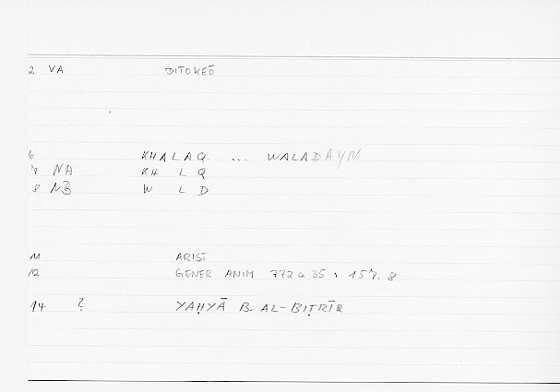 2 VA DITOKEŌ
6 KHALAQ ... WALADAYN
7 NA KH L Q
8 NB W L D
11 ARIST
12 GENER ANIM 772a 35 : 157.8
14 ? YAḤYĀ B. AL-BIṬRĪQ